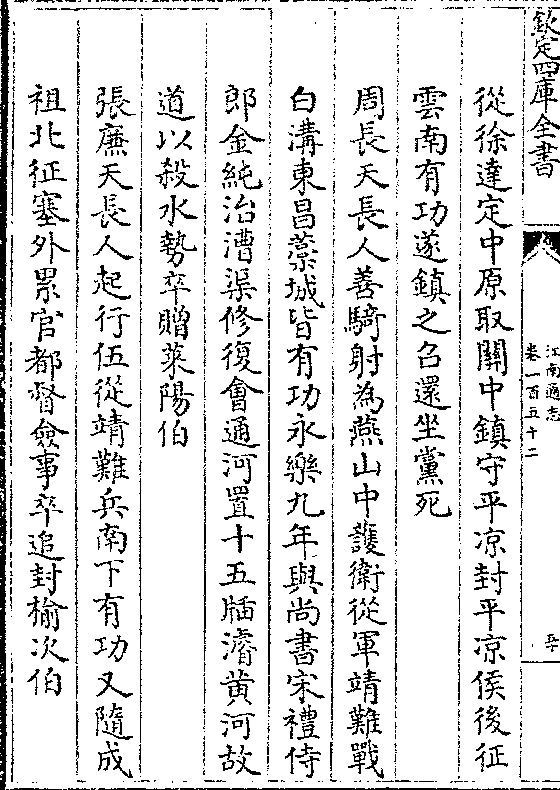 欽定四庫全書
江南通志
卷一百五十二
從徐達定中原取關中鎮守平凉封平凉侯後征
雲南有功遂鎮之召還坐黨死
周長天長人善騎射為燕山中護衛從軍靖難戰
白溝東昌藁城皆有功永樂九年與尚書宋禮侍
郎金純治漕渠修復會通河置十五牐濬黄河故
道以殺水勢卒贈萊陽伯
張廉天長人起行伍從靖難兵南下有功又隨成
祖北征塞外累官都督僉事卒追封榆次伯